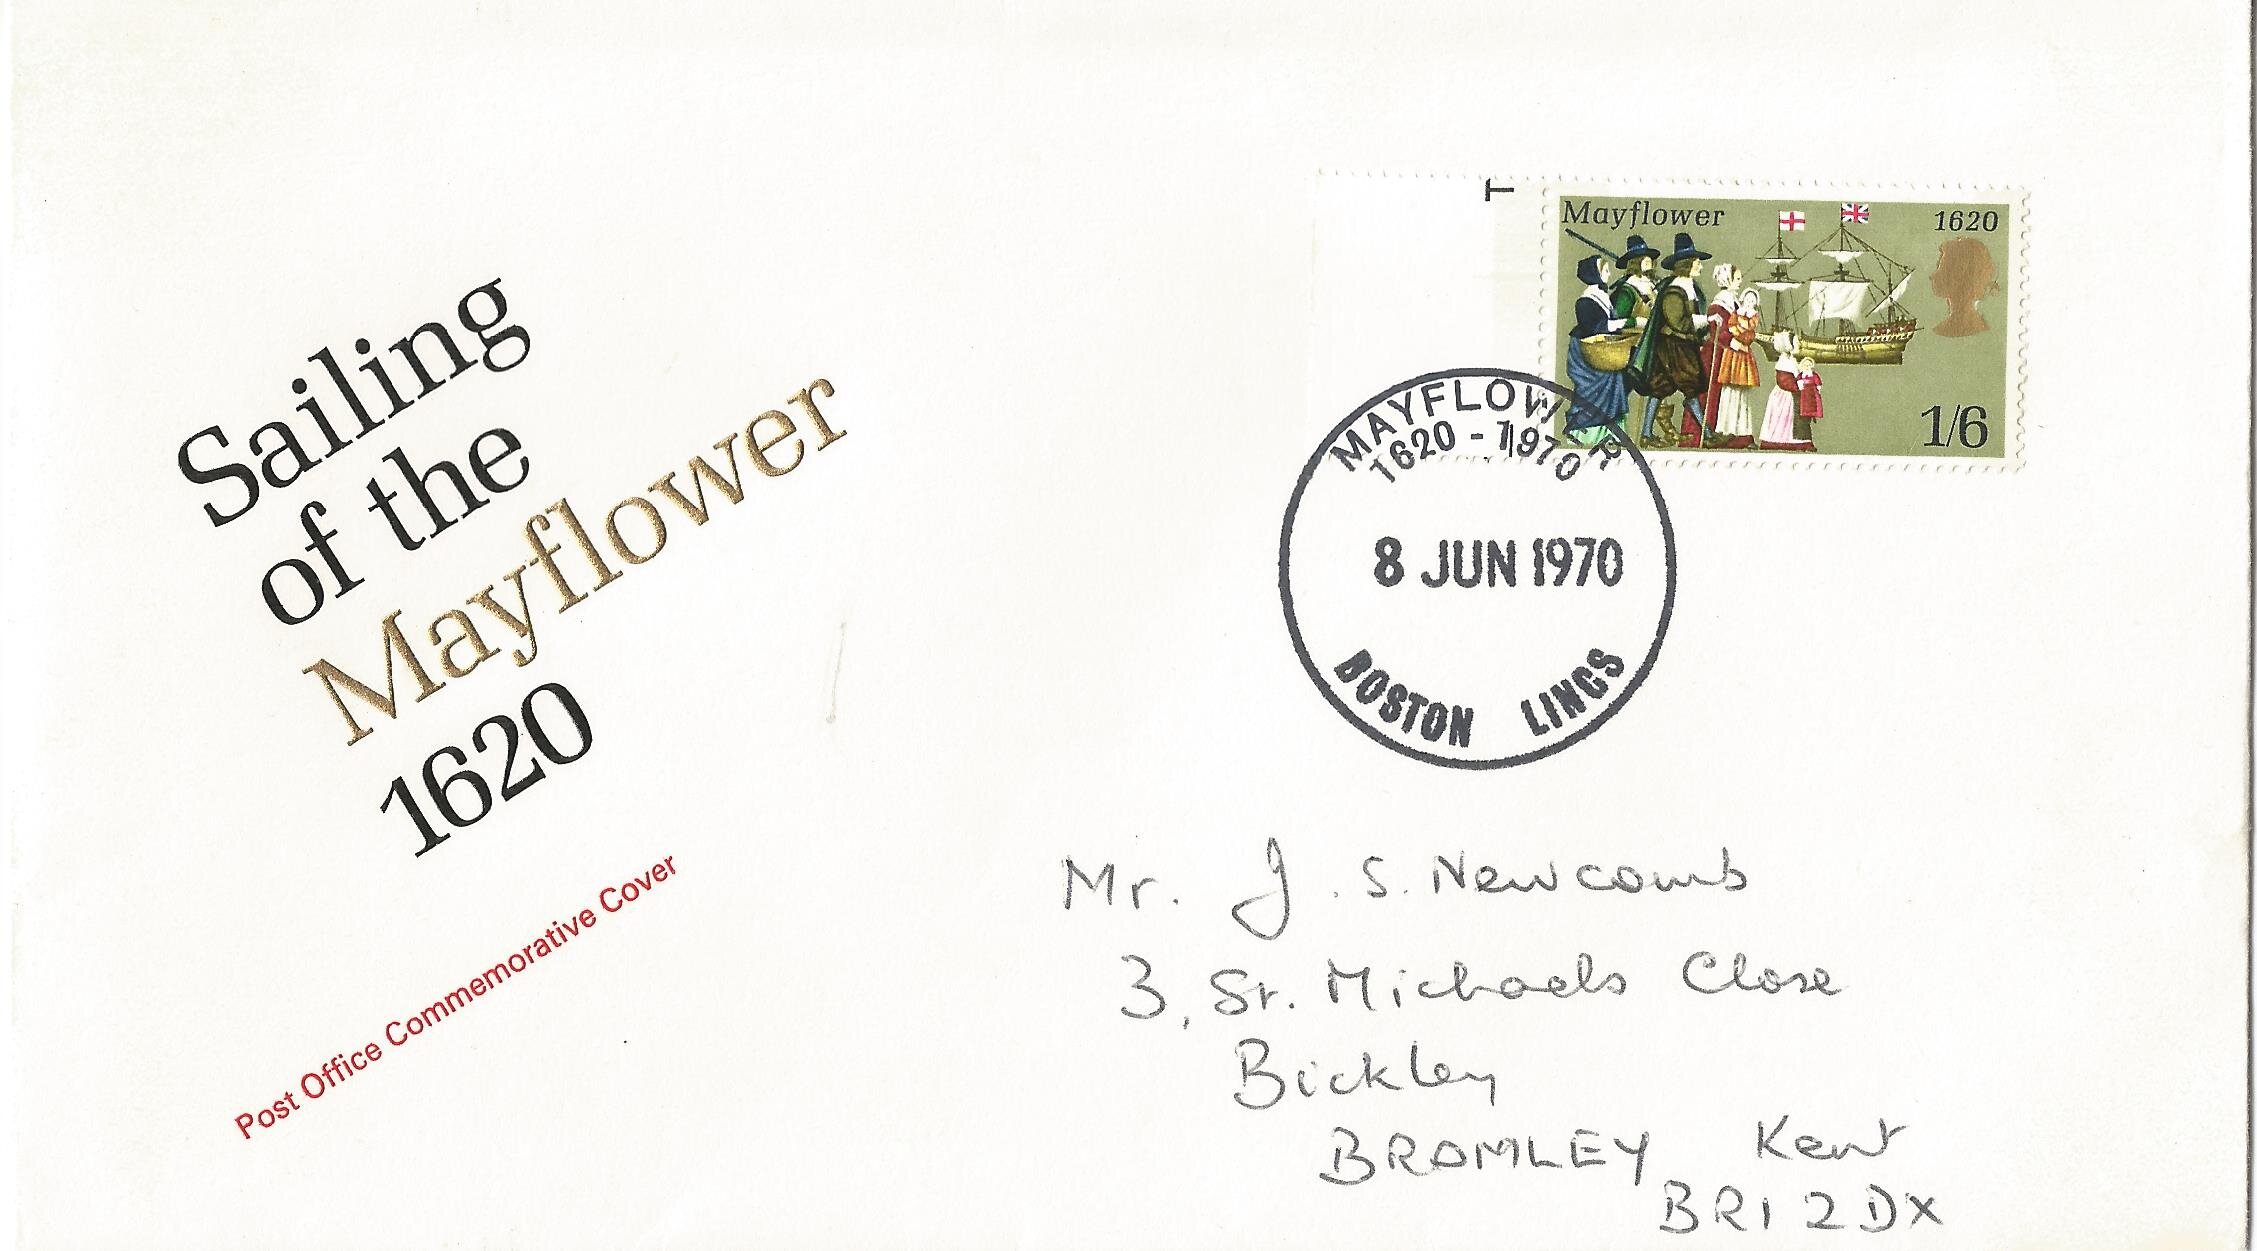 Sailing
of the
Mayflower
1620
Post Office Commemorative Cover
T
Mayflower 1620
1/6
MAYFLOWER
1620 - 1970
8 JUN 1970
BOSTON LINCS
Mr. J. S. Newcomb
3, St. Michaels Close
Bickley
BROMLEY Kent
BR1 2DX